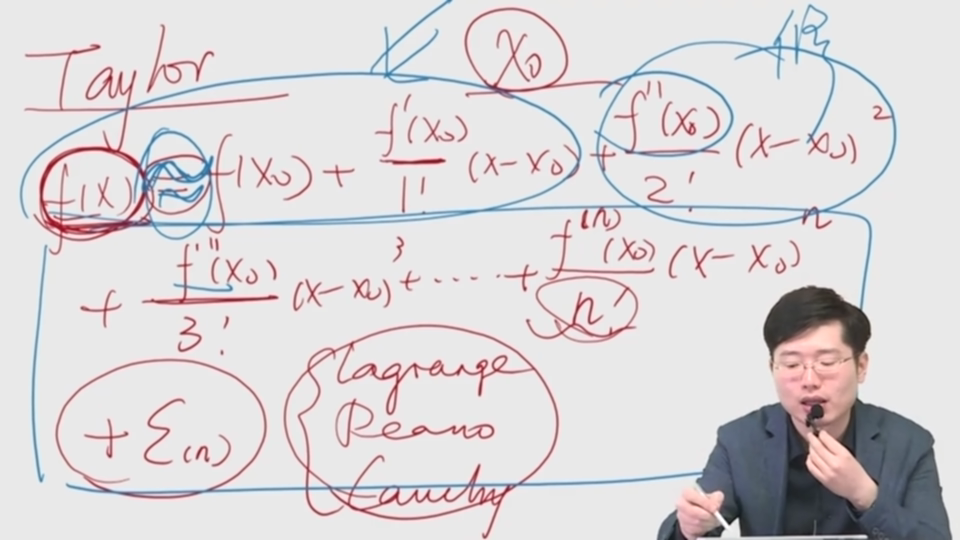 Taylor
x₀
f(x) ≈ f(x₀) + f'(x₀)/1! (x-x₀) + f''(x₀)/2! (x-x₀)²
+ f'''(x₀)/3! (x-x₀)³ + ······ + f⁽ⁿ⁾(x₀)/n! (x-x₀)ⁿ
+ Σ(n)
Lagrange
Peano
Cauchy